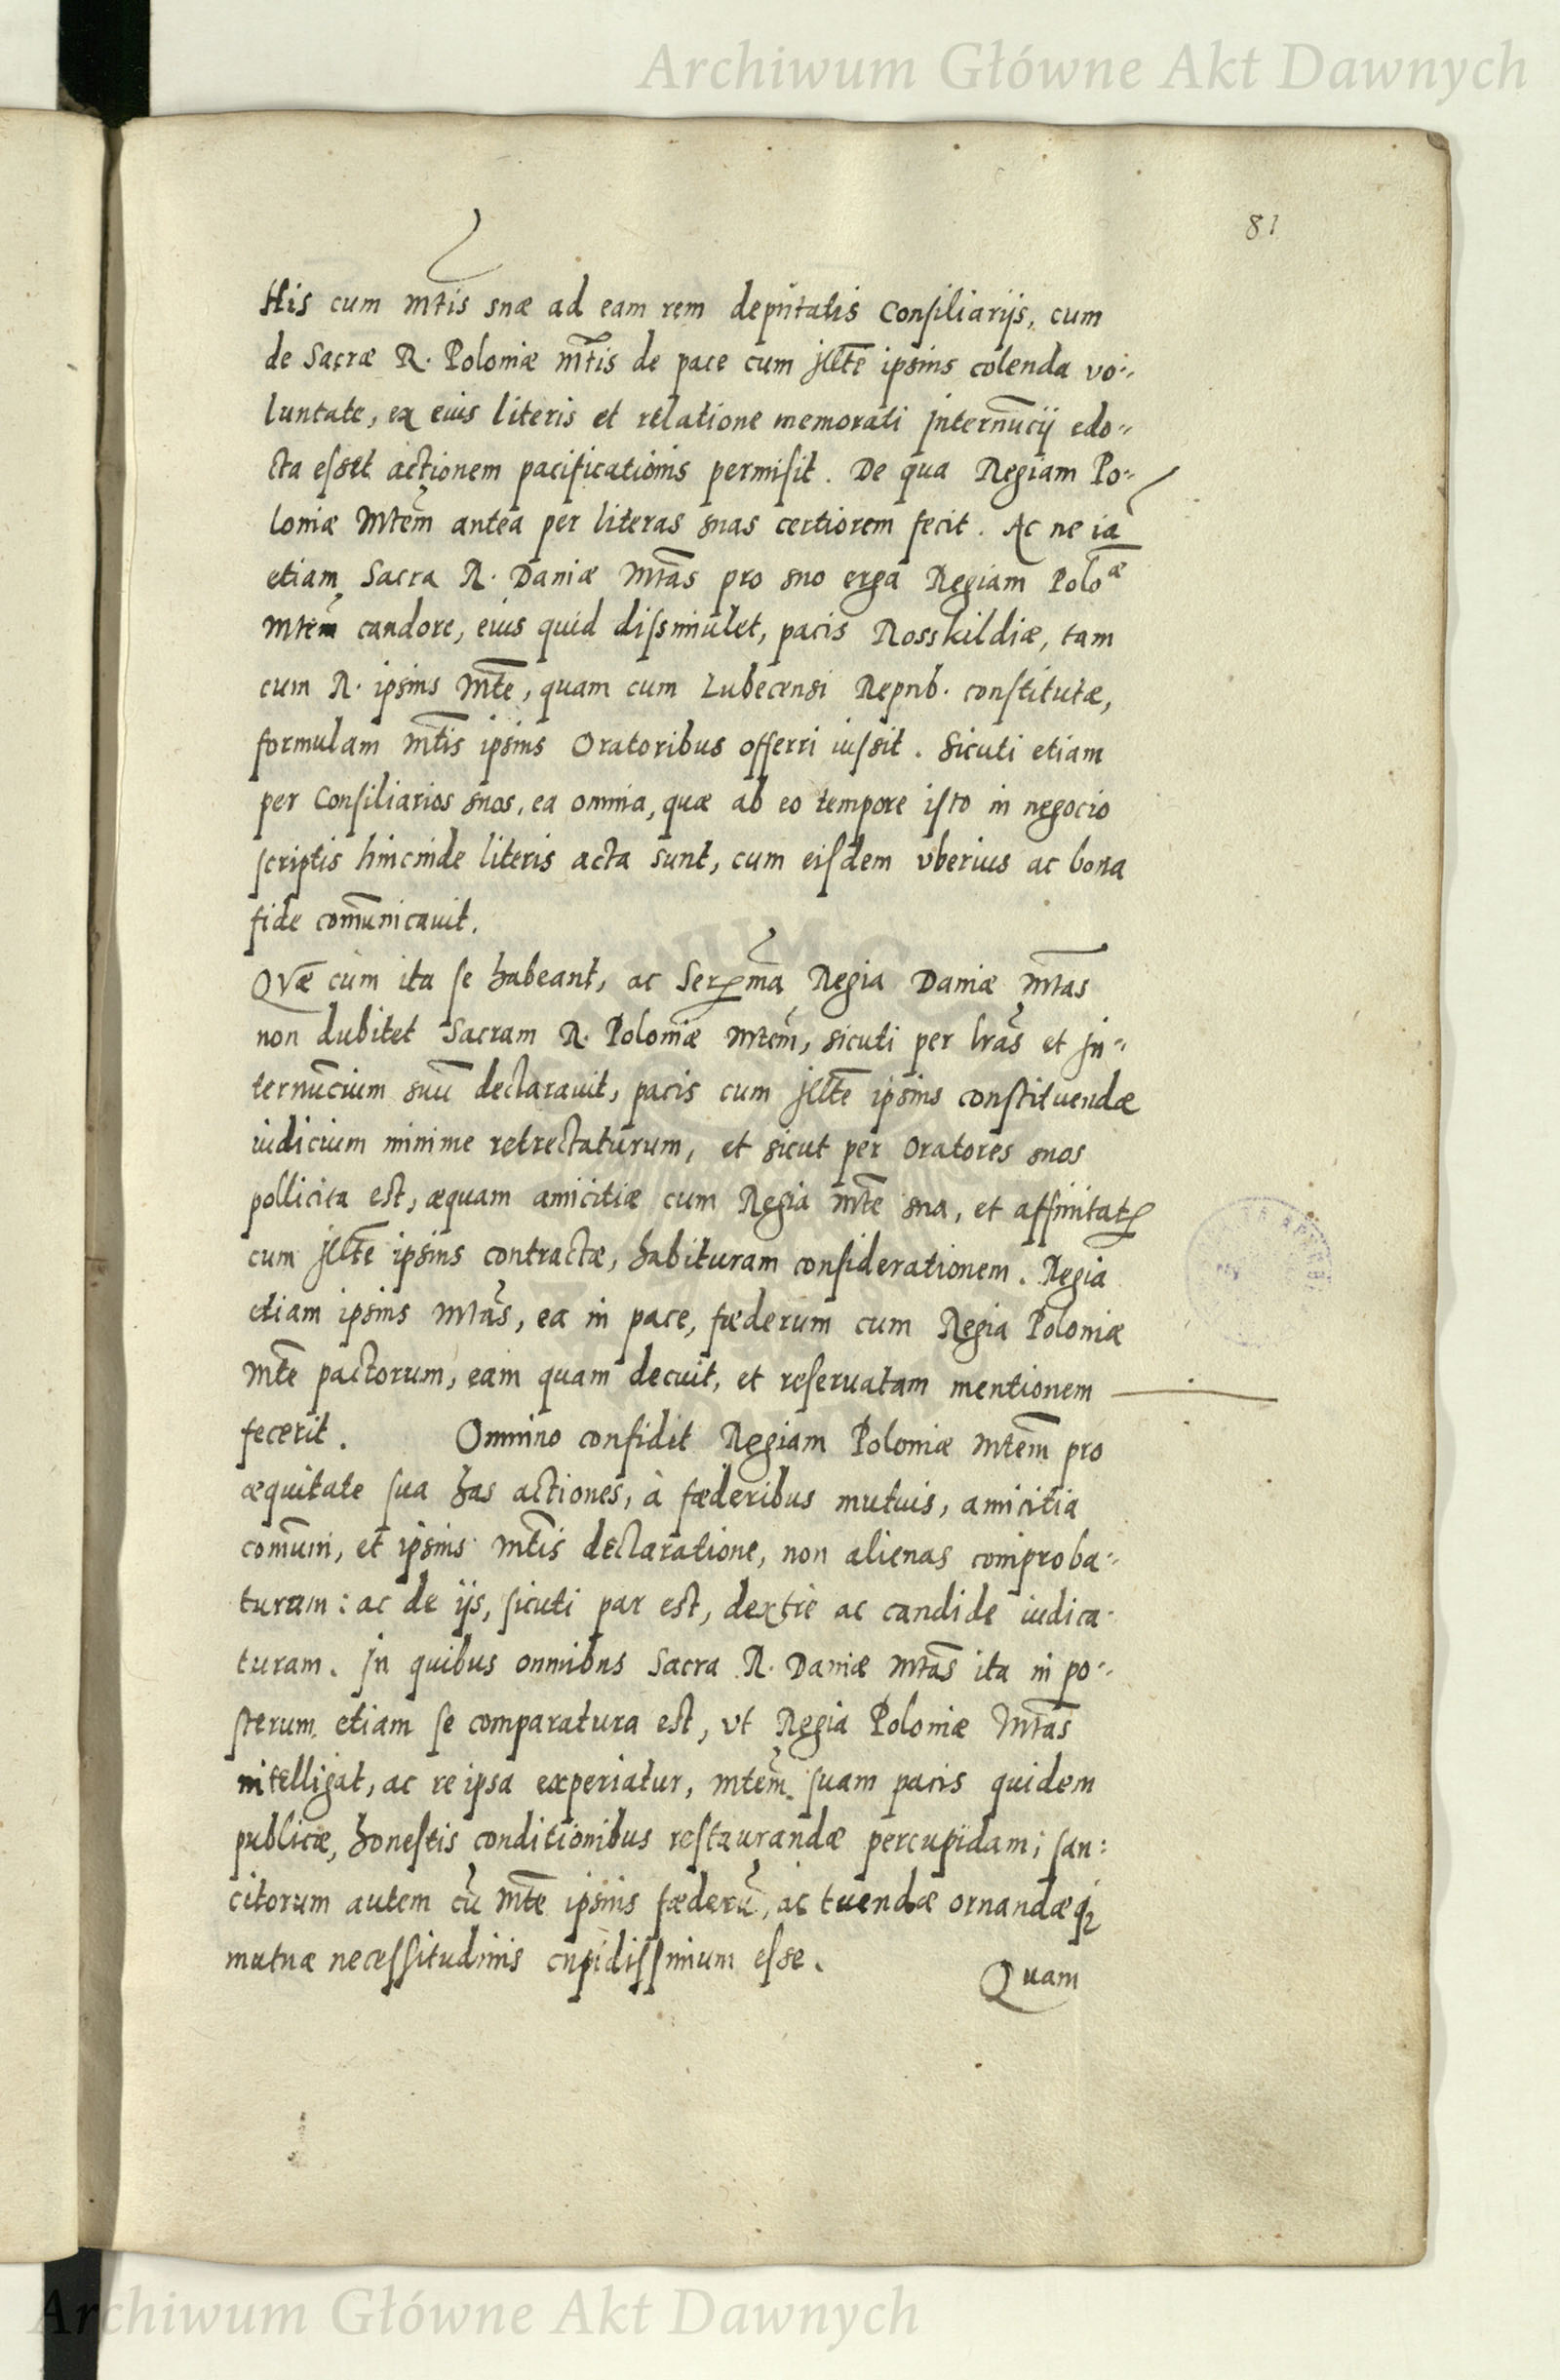 Archiwum Główne Akt Dawnych
81
His cum Mtis suæ ad eam rem deputatis Consiliarijs, cum
de Sacræ R. Poloniæ Mtis de pace cum Illte ipsius colenda vo-
luntate, ex eius literis et relatione memorati Internūcij edo-
cta esset actionem pacificationis permisit. De qua Regiam Po-
loniæ Mtem antea per literas suas certiorem fecit. Ac ne iā
etiam Sacra R. Daniæ Mtas pro suo erga Regiam Poloæ
Mtem candore, eius quid dissimulet, pacis Rosskildiæ, tam
cum R. ipsius Mte, quam cum Lubecensi Repub. constitutæ,
formulam Mtis ipsius Oratoribus offerri iussit. Sicuti etiam
per Consiliarios suos, ea omnia, quæ ab eo tempore isto in negocio
scriptis hincinde literis acta sunt, cum eisdem vberius ac bona
fide comūnicauit.
Quæ cum ita se habeant, ac Serma Regia Daniæ Mtas
non dubitet Sacram R. Poloniæ Mtem, sicuti per lras et In-
ternūcium suū declarauit, pacis cum Illte ipsius constituendæ
iudicium minime retrectaturum, et sicut per Oratores suos
pollicita est, æquam amicitiæ cum Regia Mte sua, et affinitatis
cum Illte ipsius contractæ, habituram considerationem. Regia
etiam ipsius Mtas, ea in pace, fœderum cum Regia Poloniæ
Mte pactorum, eam quam decuit, et reseruatam mentionem
fecerit. Omnino confidit Regiam Poloniæ Mtem pro
æquitate sua has actiones, à fœderibus mutuis, amicitia
comūni, et ipsius Mtis declaratione, non alienas comproba-
turam: ac de ijs, sicuti par est, dextrè ac candide iudica-
turam. In quibus omnibus Sacra R. Daniæ Mtas ita in po-
sterum etiam se comparatura est, vt Regia Poloniæ Mtas
intelligat, ac re ipsa experiatur, Mtem suam pacis quidem
publicæ, honestis conditionibus restaurandæ percupidam; san:
citorum autem cū Mte ipsius fœderū, ac tuendæ ornandæq;
mutuæ necessitudinis cupidissimum esse.
Quam
Archiwum Główne Akt Dawnych